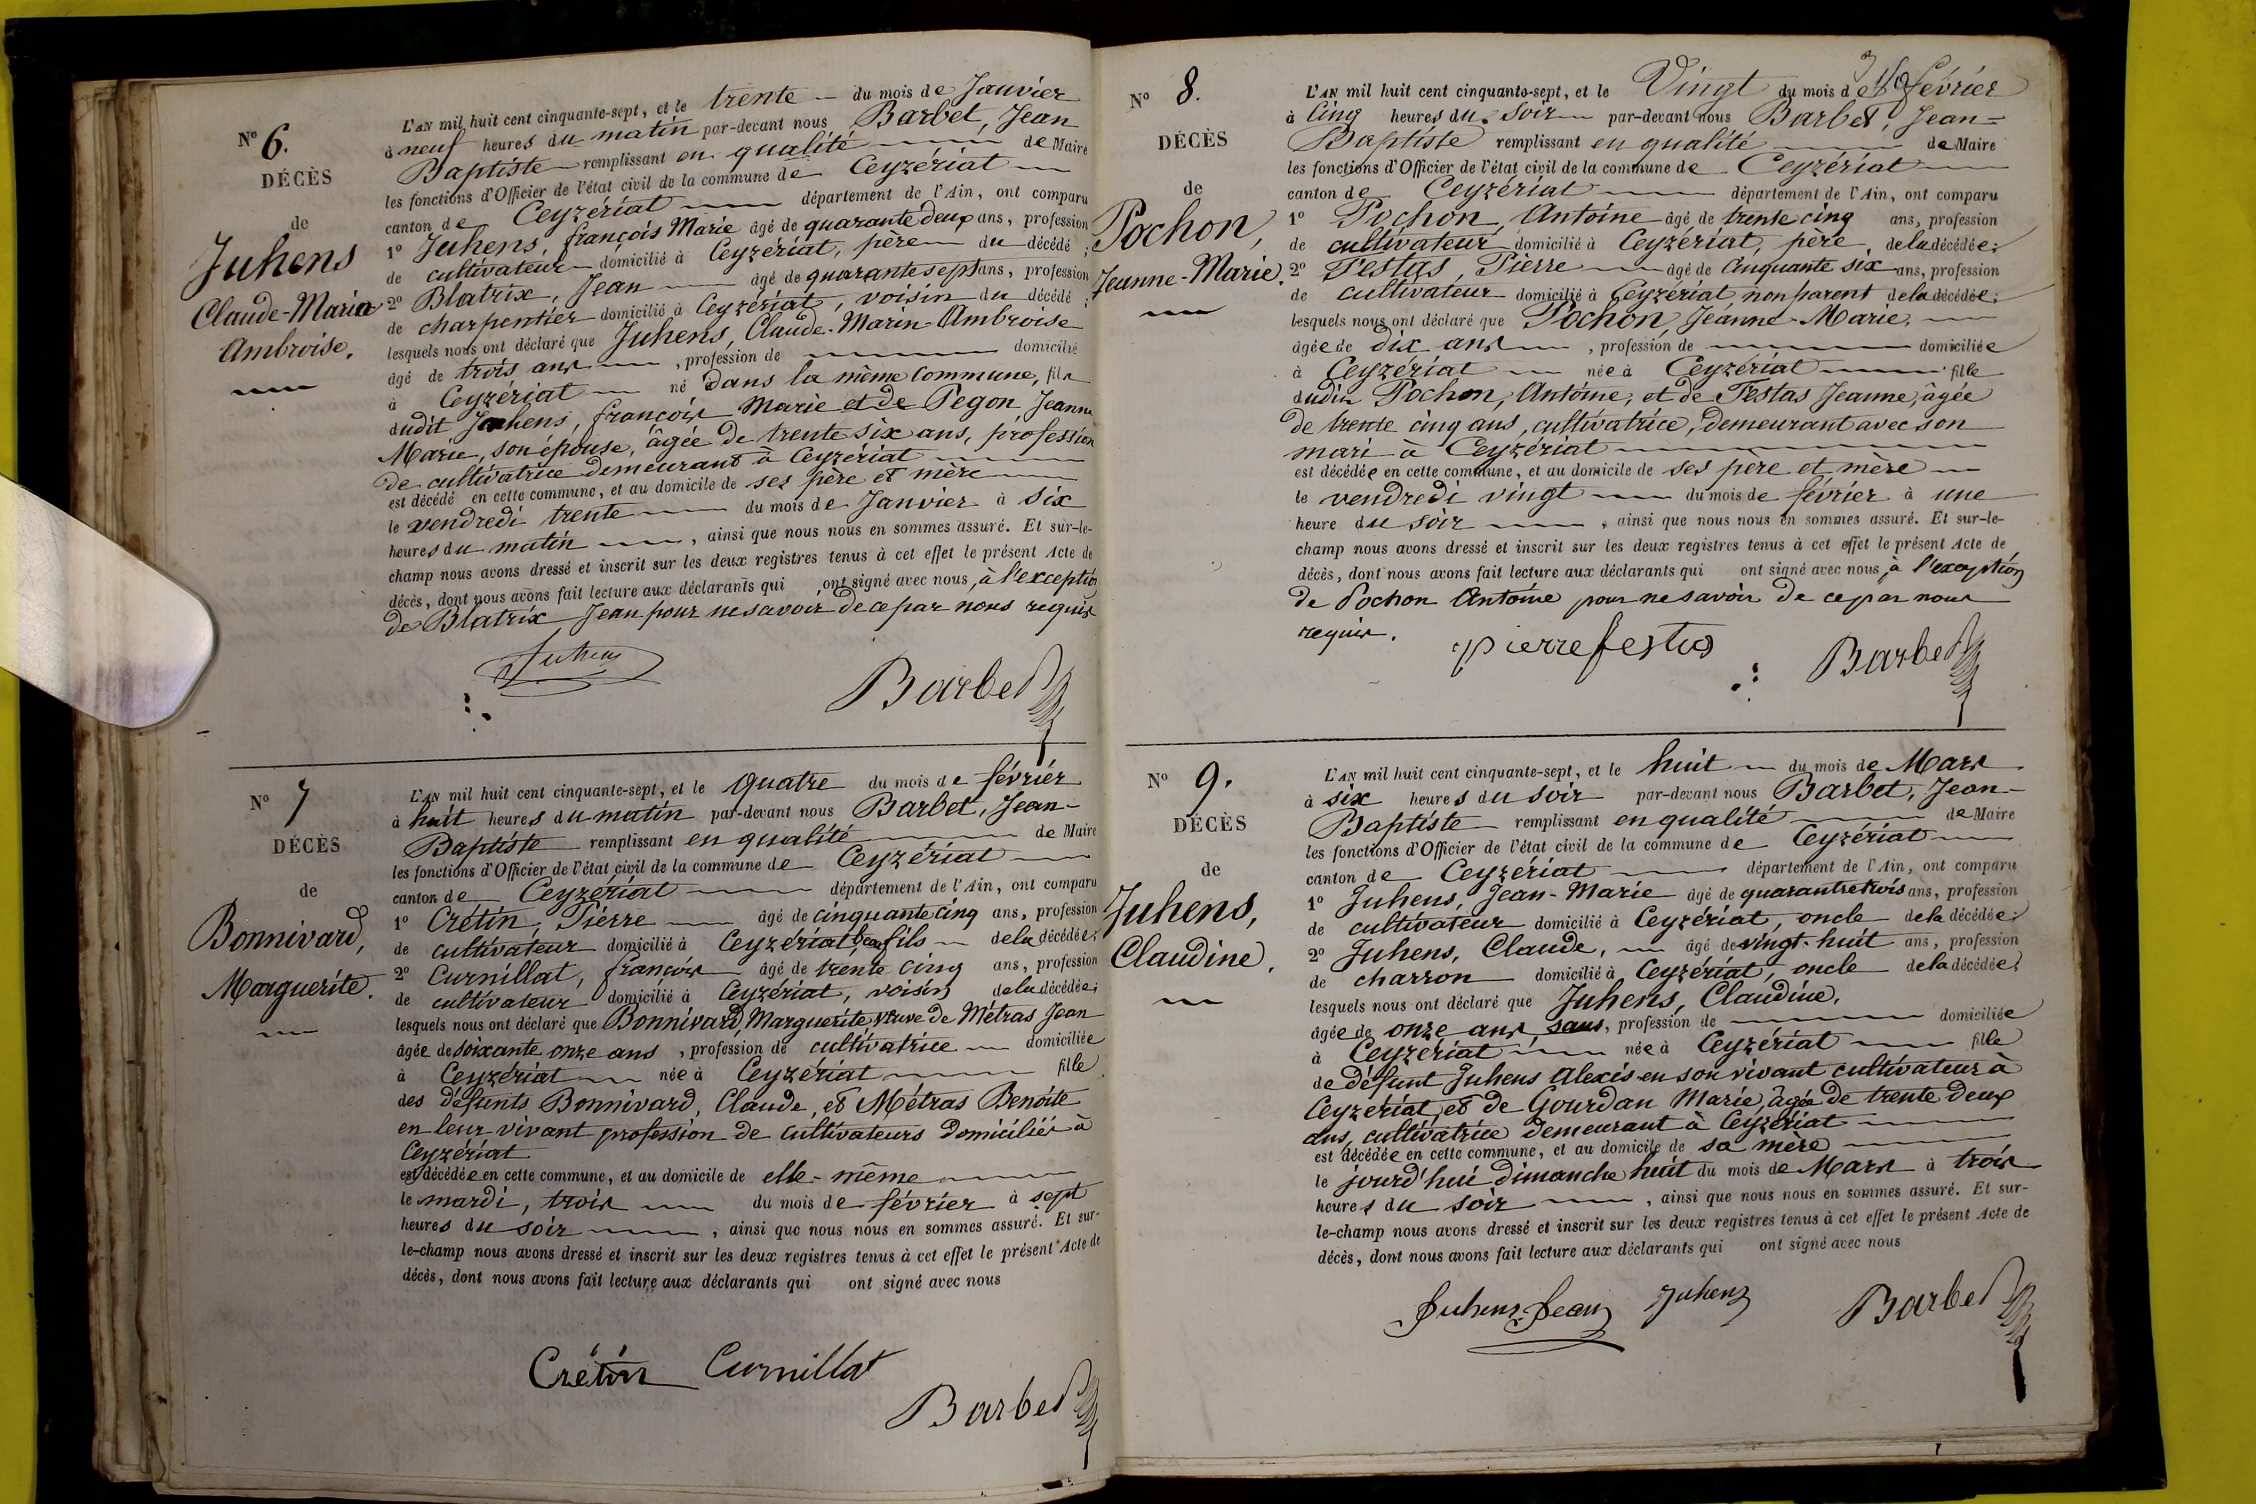 N° 6.
DÉCÈS
de
Juhens
Claude-Marin
Ambroise.
L'AN mil huit cent cinquante-sept, et le trente du mois de Janvier
à neuf heures du matin par-devant nous Barbet, Jean
Baptiste remplissant en qualité de Maire
les fonctions d'Officier de l'état civil de la commune de Ceyzériat
canton de Ceyzériat département de l'Ain, ont comparu
1° Juhens, françois Marie âgé de quarante deux ans, profession
de cultivateur domicilié à Ceyzériat, père du décédé ;
2° Blatrix, Jean âgé de quarante sept ans, profession
de charpentier domicilié à Ceyzériat, voisin du décédé ;
lesquels nous ont déclaré que Juhens, Claude-Marin-Ambroise
âgé de trois ans , profession de domicilié
à Ceyzériat né dans la même commune, fils
dudit Juhens, françois Marie et de Pegon Jeanne
Marie, son épouse, âgée de trente six ans, profession
de cultivatrice demeurant à Ceyzériat
est décédé en cette commune, et au domicile de ses père et mère
le vendredi trente du mois de Janvier à six
heures du matin , ainsi que nous nous en sommes assuré. Et sur-le-
champ nous avons dressé et inscrit sur les deux registres tenus à cet effet le présent Acte de
décès, dont nous avons fait lecture aux déclarants qui ont signé avec nous, à l'exception
de Blatrix Jean pour ne savoir de ce par nous requis
Juhens
Barbet
N° 7
DÉCÈS
de
Bonnivard,
Marguerite.
L'AN mil huit cent cinquante-sept, et le quatre du mois de février
à huit heures du matin par-devant nous Barbet, Jean-
Baptiste remplissant en qualité de Maire
les fonctions d'Officier de l'état civil de la commune de Ceyzériat
canton de Ceyzériat département de l'Ain, ont comparu
1° Crétin, Pierre âgé de cinquante cinq ans, profession
de cultivateur domicilié à Ceyzériat beau fils de la décédée ;
2° Curnillat, françois âgé de trente cinq ans, profession
de cultivateur domicilié à Ceyzériat, voisin de la décédée ;
lesquels nous ont déclaré que Bonnivard, Marguerite, veuve de Métras Jean
âgée de soixante onze ans , profession de cultivatrice domiciliée
à Ceyzériat née à Ceyzériat fille
des défunts Bonnivard, Claude, et Métras Benoite
en leur vivant profession de cultivateurs domiciliés à
Ceyzériat
est décédée en cette commune, et au domicile de elle-même
le mardi, trois du mois de février à sept
heures du soir , ainsi que nous nous en sommes assuré. Et sur-
le-champ nous avons dressé et inscrit sur les deux registres tenus à cet effet le présent Acte de
décès, dont nous avons fait lecture aux déclarants qui ont signé avec nous
Crétin Curnillat
Barbet
N° 8.
DÉCÈS
de
Pochon,
Jeanne-Marie.
L'AN mil huit cent cinquante-sept, et le Vingt du mois de février
à Cinq heures du soir par-devant nous Barbet, Jean-
Baptiste remplissant en qualité de Maire
les fonctions d'Officier de l'état civil de la commune de Ceyzériat
canton de Ceyzériat département de l'Ain, ont comparu
1° Pochon, Antoine âgé de trente cinq ans, profession
de cultivateur domicilié à Ceyzériat, père, de la décédée ;
2° Festas, Pierre âgé de Cinquante six ans, profession
de cultivateur domicilié à Ceyzériat, non parent de la décédée ;
lesquels nous ont déclaré que Pochon, Jeanne-Marie,
âgée de dix ans , profession de domiciliée
à Ceyzériat née à Ceyzériat fille
dudit Pochon, Antoine, et de Festas Jeanne, âgée
de trente cinq ans, cultivatrice, demeurant avec son
mari à Ceyzériat
est décédée en cette commune, et au domicile de ses père et mère
le vendredi vingt du mois de février à une
heure du soir , ainsi que nous nous en sommes assuré. Et sur-le-
champ nous avons dressé et inscrit sur les deux registres tenus à cet effet le présent Acte de
décès, dont nous avons fait lecture aux déclarants qui ont signé avec nous, à l'exception
de Pochon Antoine pour ne savoir de ce par nous
requis.
pierre festas
Barbet
N° 9.
DÉCÈS
de
Juhens,
Claudine.
L'AN mil huit cent cinquante-sept, et le huit du mois de Mars
à six heures du soir par-devant nous Barbet, Jean-
Baptiste remplissant en qualité de Maire
les fonctions d'Officier de l'état civil de la commune de Ceyzériat
canton de Ceyzériat département de l'Ain, ont comparu
1° Juhens, Jean-Marie âgé de quarante trois ans, profession
de cultivateur domicilié à Ceyzériat, oncle de la décédée ;
2° Juhens, Claude, âgé de vingt-huit ans, profession
de charron domicilié à Ceyzériat, oncle de la décédée ;
lesquels nous ont déclaré que Juhens, Claudine,
âgée de onze ans sans, profession de domiciliée
à Ceyzériat née à Ceyzériat fille
de défunt Juhens Alexis en son vivant cultivateur à
Ceyzériat, et de Gourdan Marie, âgée de trente deux
ans, cultivatrice demeurant à Ceyzériat
est décédée en cette commune, et au domicile de sa mère
le jourd'hui dimanche huit du mois de Mars à trois
heures du soir , ainsi que nous nous en sommes assuré. Et sur-
le-champ nous avons dressé et inscrit sur les deux registres tenus à cet effet le présent Acte de
décès, dont nous avons fait lecture aux déclarants qui ont signé avec nous
Juhens Jean Juhens
Barbet